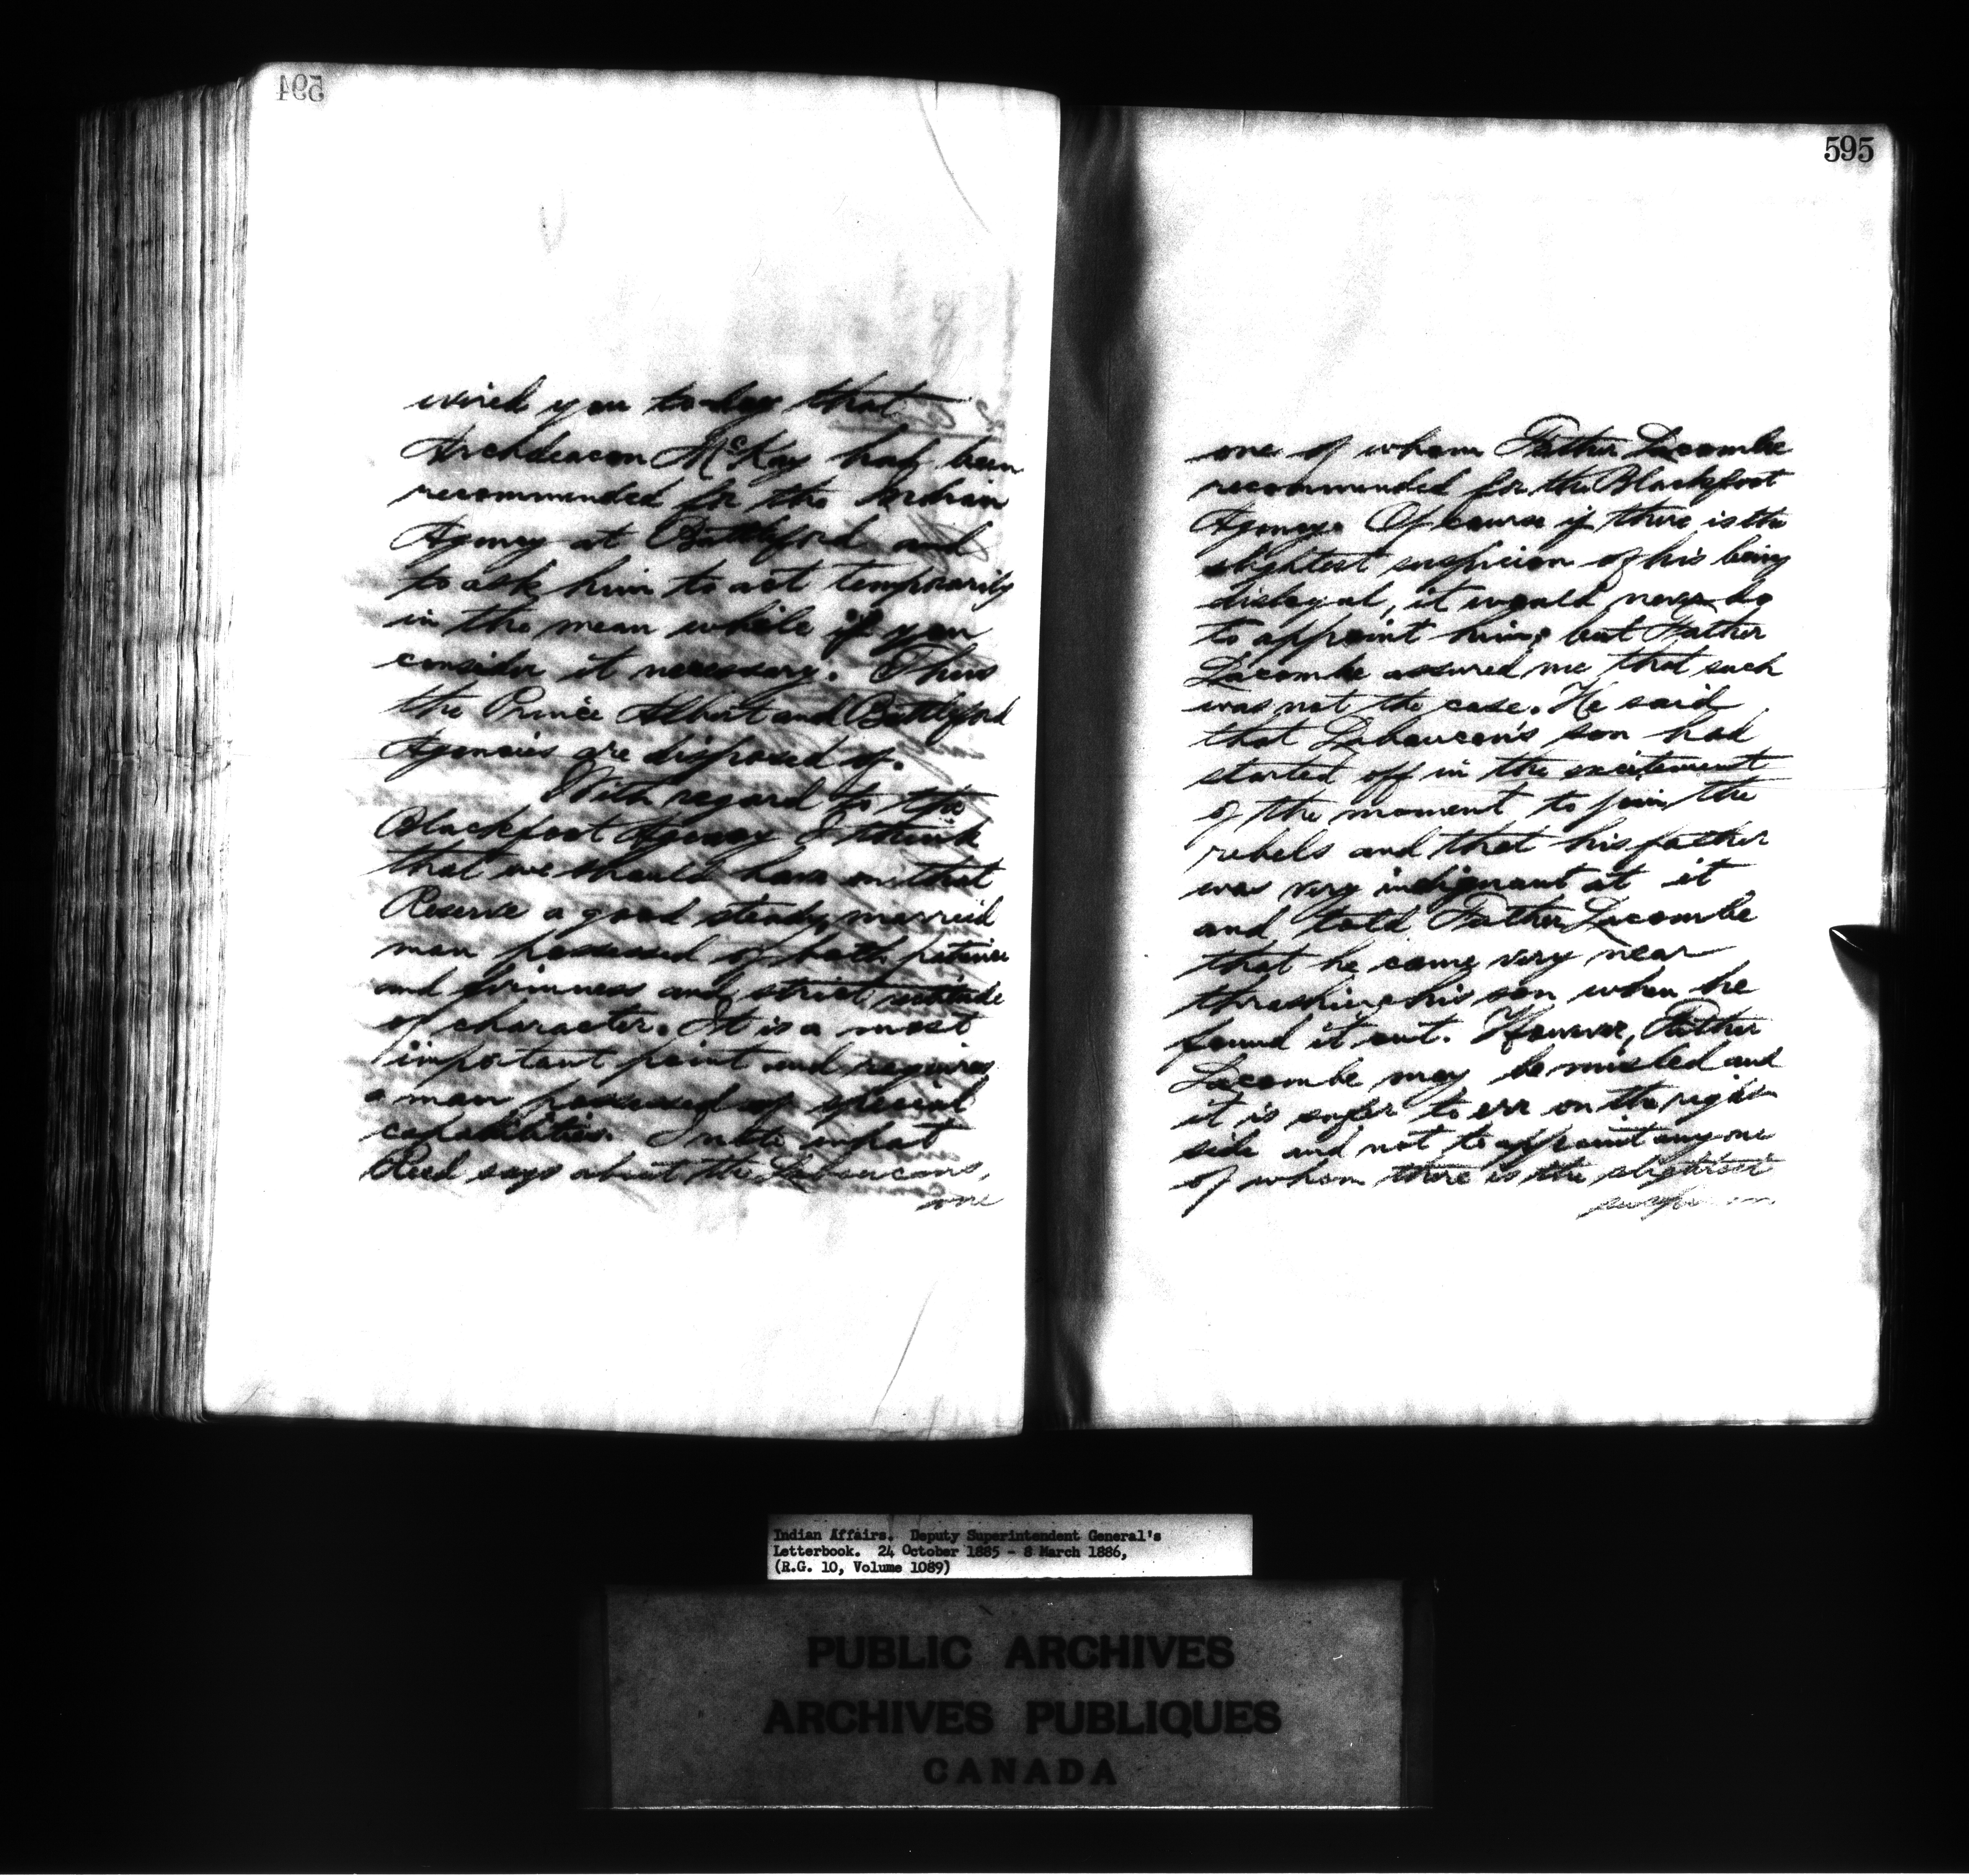 594
wired you to-day that
Archdeacon McKay had been
recommended for the Indian
Agency at Battleford and
to ask him to act temporarily
in the mean while if you
consider it necessary. Thus
the Prince Albert and Battleford
Agencies are disposed of.
With regard to the
Blackfoot Agency I think
that we should have on that
Reserve a good steady married
man possessed of both patience
and firmness and strict rectitude
of character. It is a most
important point and requires
a man possessed of special
capabilities. I note what
Reed says about the
one
595
one of whom Father Lacombe
recommended for the Blackfoot
Agency. Of course if there is the
slightest suspicion of his being
disloyal, it would never do
to appoint him; but Father
Lacombe assured me that such
was not the case. He said
that son had
started off in the excitement
of the moment to join the
rebels and that his father
was very indignant at it
and told Father Lacombe
that he came very near
thrashing his son when he
found it out. However, Father
Lacombe may be misled and
it is safer to err on the right
side and not to appoint any one
of whom there is the slightest
suspicion
Indian Affairs. Deputy Superintendent General's
Letterbook. 24 October 1885 - 8 March 1886,
(R.G. 10, Volume 1089)
PUBLIC ARCHIVES
ARCHIVES PUBLIQUES
CANADA